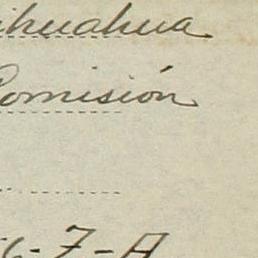 ihuahua
Comisión
6-7-A